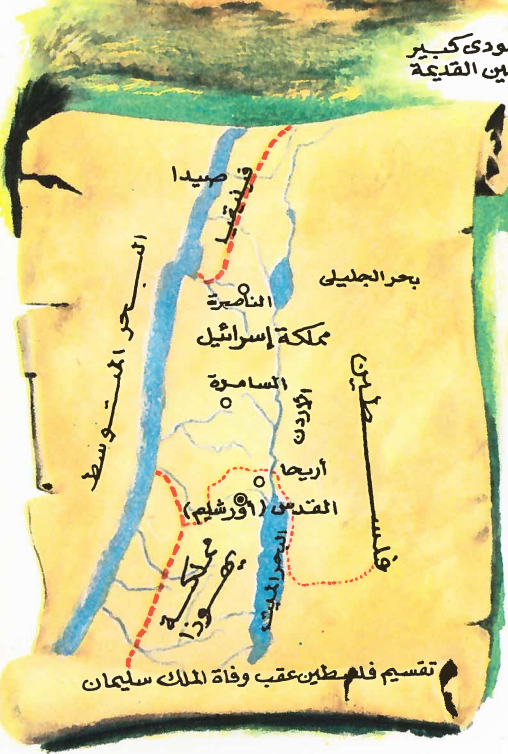 ودى كبير
ين القديمة
صيدا
فينيقيا
البحر المتوسط
بحر الجليلى
الناصرة
مملكة إسرائيل
السامرة
الأردن
فلسطين
أريحا
القدس (أورشليم)
البحر الميت
مملكة
يهوزا
تقسيم فلسطين عقب وفاة الملك سليمان